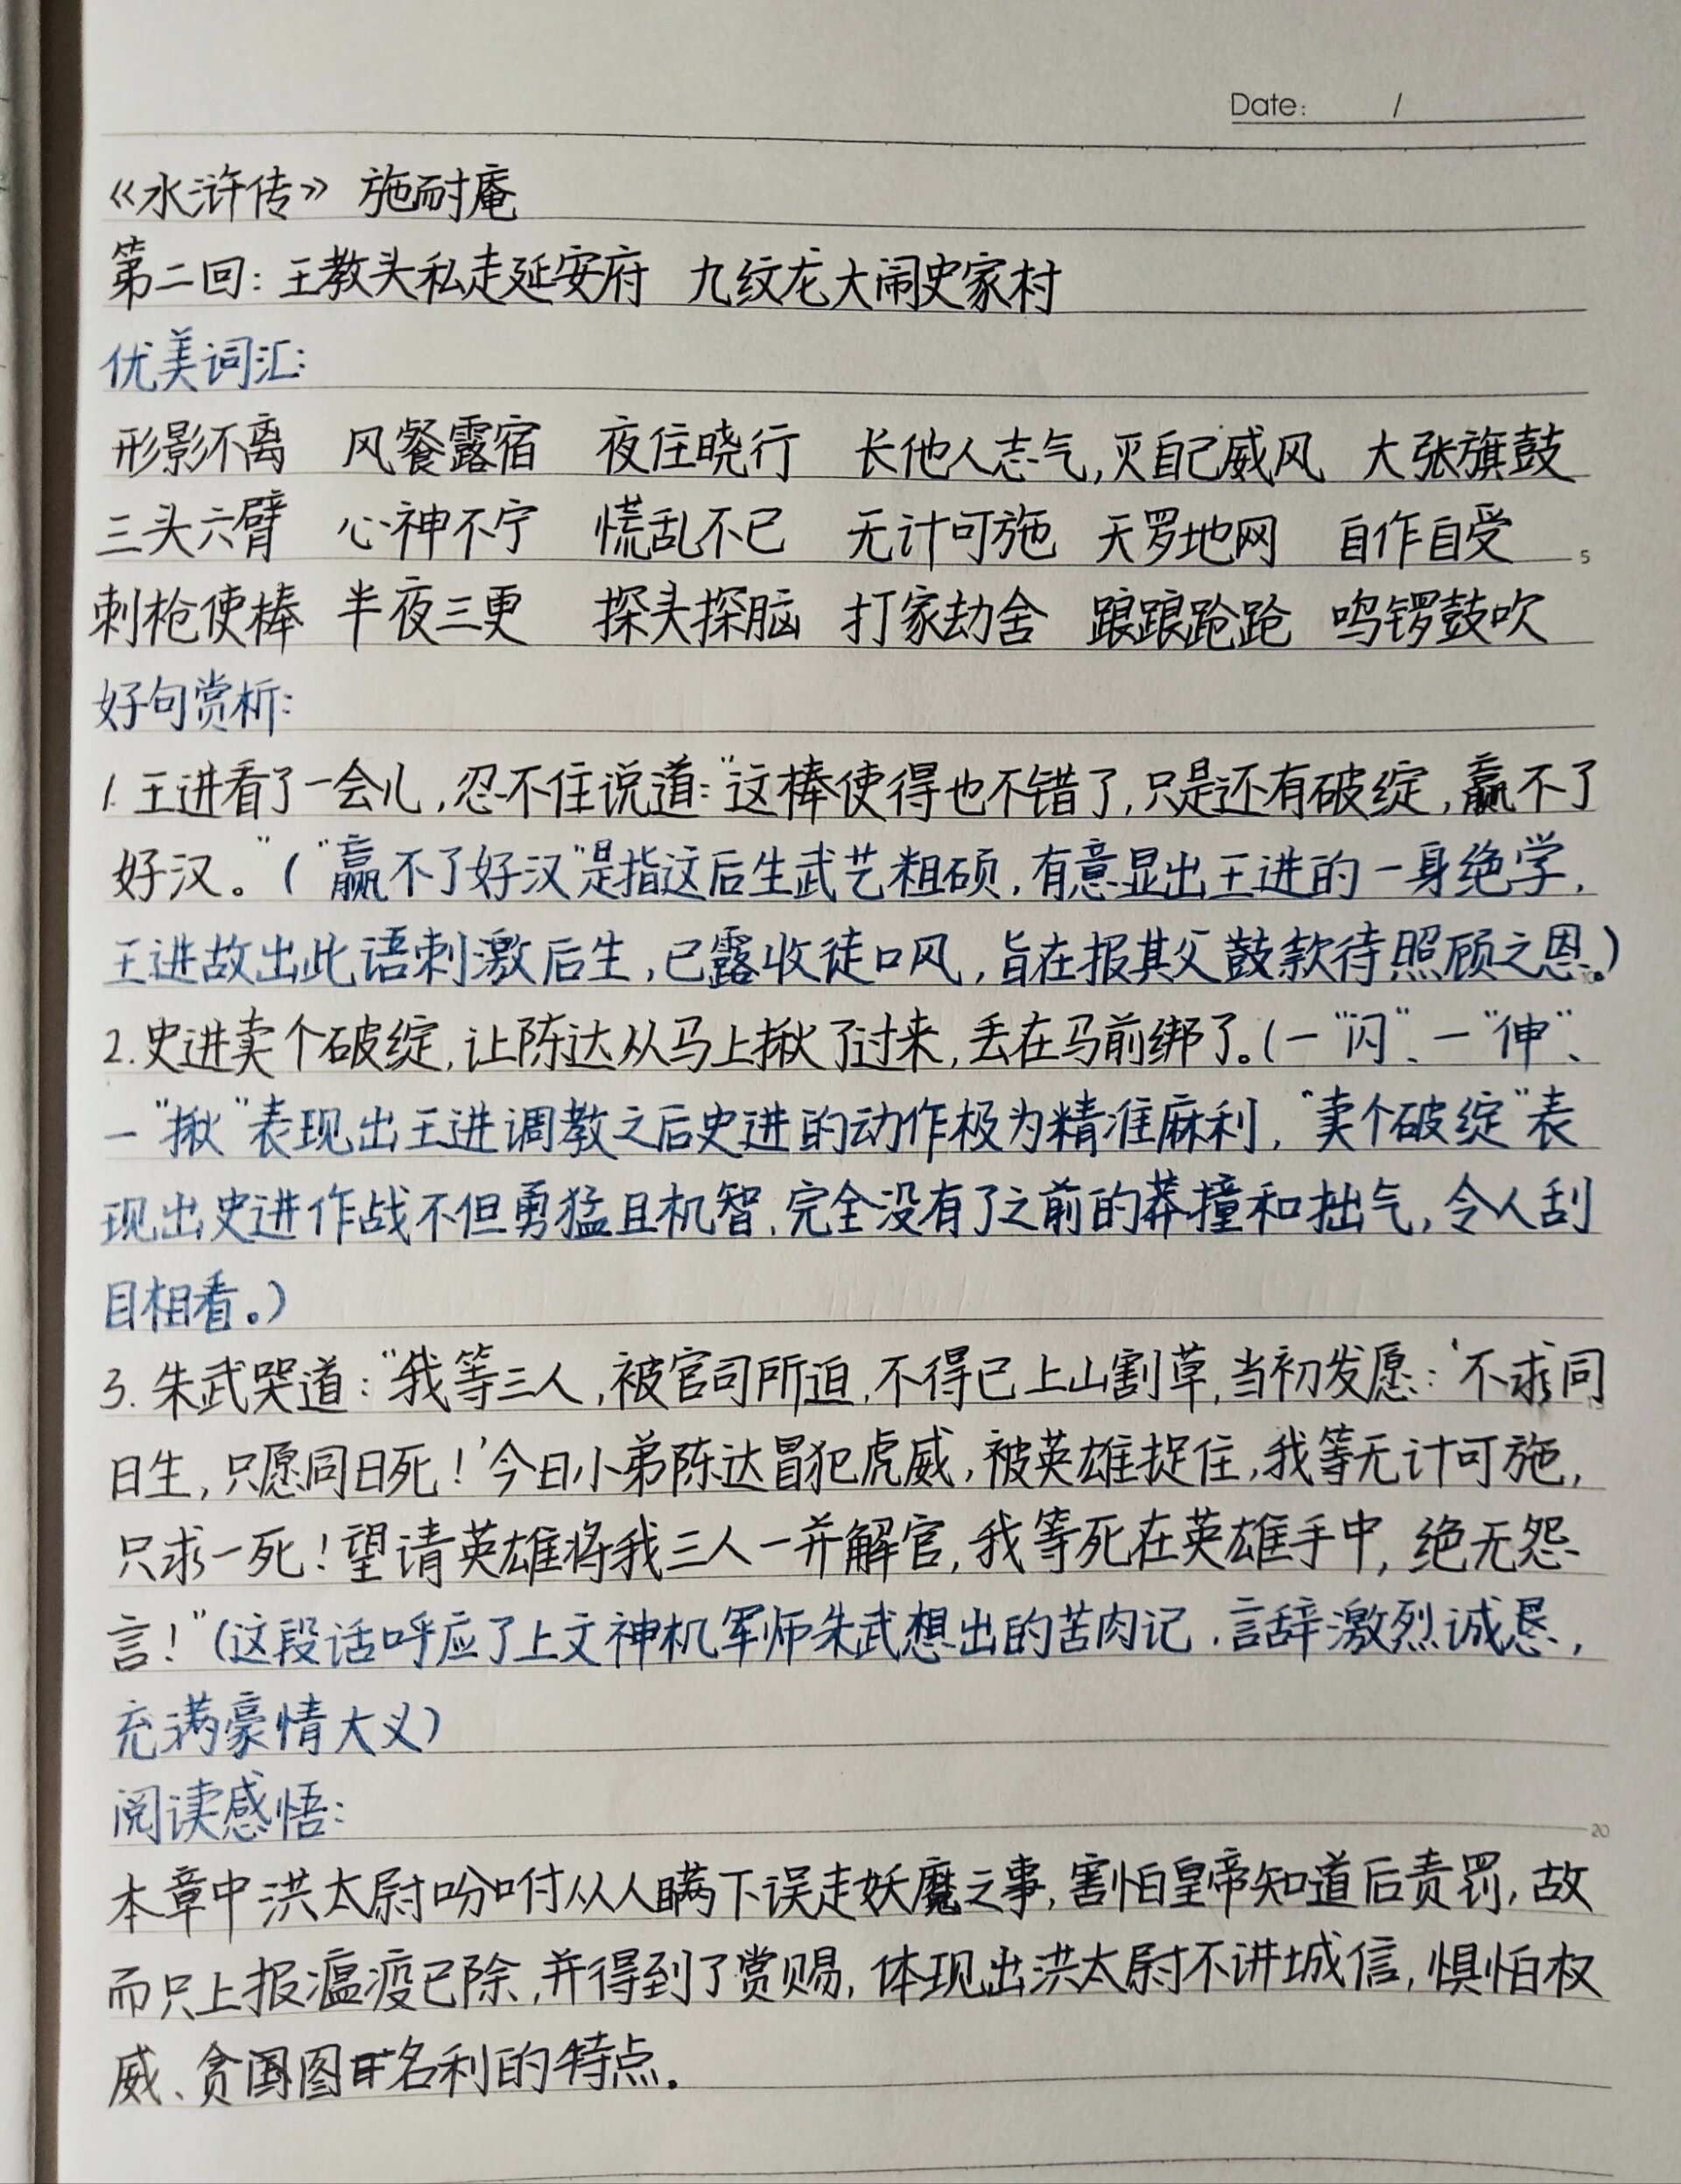 Date: /
《水浒传》 施耐庵
第二回：王教头私走延安府 九纹龙大闹史家村
优美词汇：
形影不离 风餐露宿 夜住晓行 长他人志气，灭自己威风 大张旗鼓
三头六臂 心神不宁 慌乱不已 无计可施 天罗地网 自作自受
5
刺枪使棒 半夜三更 探头探脑 打家劫舍 踉踉跄跄 鸣锣鼓吹
好句赏析：
1. 王进看了一会儿，忍不住说道：“这棒使得也不错了，只是还有破绽，赢不了
好汉。”（“赢不了好汉”是指这后生武艺粗硕，有意显出王进的一身绝学，
王进故出此语刺激后生，已露收徒口风，旨在报其父鼓款待照顾之恩。）
10
2. 史进卖个破绽，让陈达从马上揪了过来，丢在马前绑了。（一“闪”、一“伸”、
一“揪”表现出王进调教之后史进的动作极为精准麻利，“卖个破绽”表
现出史进作战不但勇猛且机智，完全没有了之前的莽撞和拙气，令人刮
目相看。）
3. 朱武哭道：“我等三人，被官司所迫，不得已上山割草，当初发愿：‘不求同
15
日生，只愿同日死！’今日小弟陈达冒犯虎威，被英雄捉住，我等无计可施，
只求一死！望请英雄将我三人一并解官，我等死在英雄手中，绝无怨
言！”（这段话呼应了上文神机军师朱武想出的苦肉记，言辞激烈诚恳，
充满豪情大义）
阅读感悟：
20
本章中洪太尉吩咐从人瞒下误走妖魔之事，害怕皇帝知道后责罚，故
而只上报瘟疫已除，并得到了赏赐，体现出洪太尉不讲城信，惧怕权
威、贪图名利的特点。